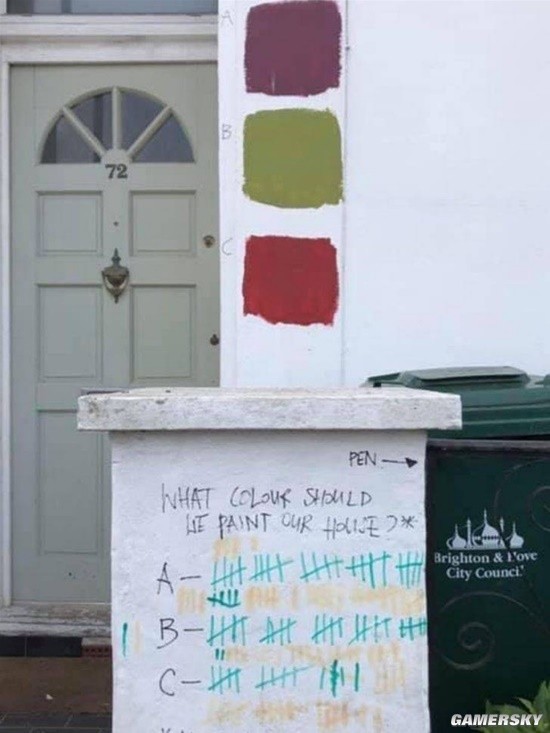 A
B
72
C
PEN →
WHAT COLOUR SHOULD
WE PAINT OUR HOUSE ? *
A -
B -
C -
Brighton & Hove
City Council
GAMERSKY